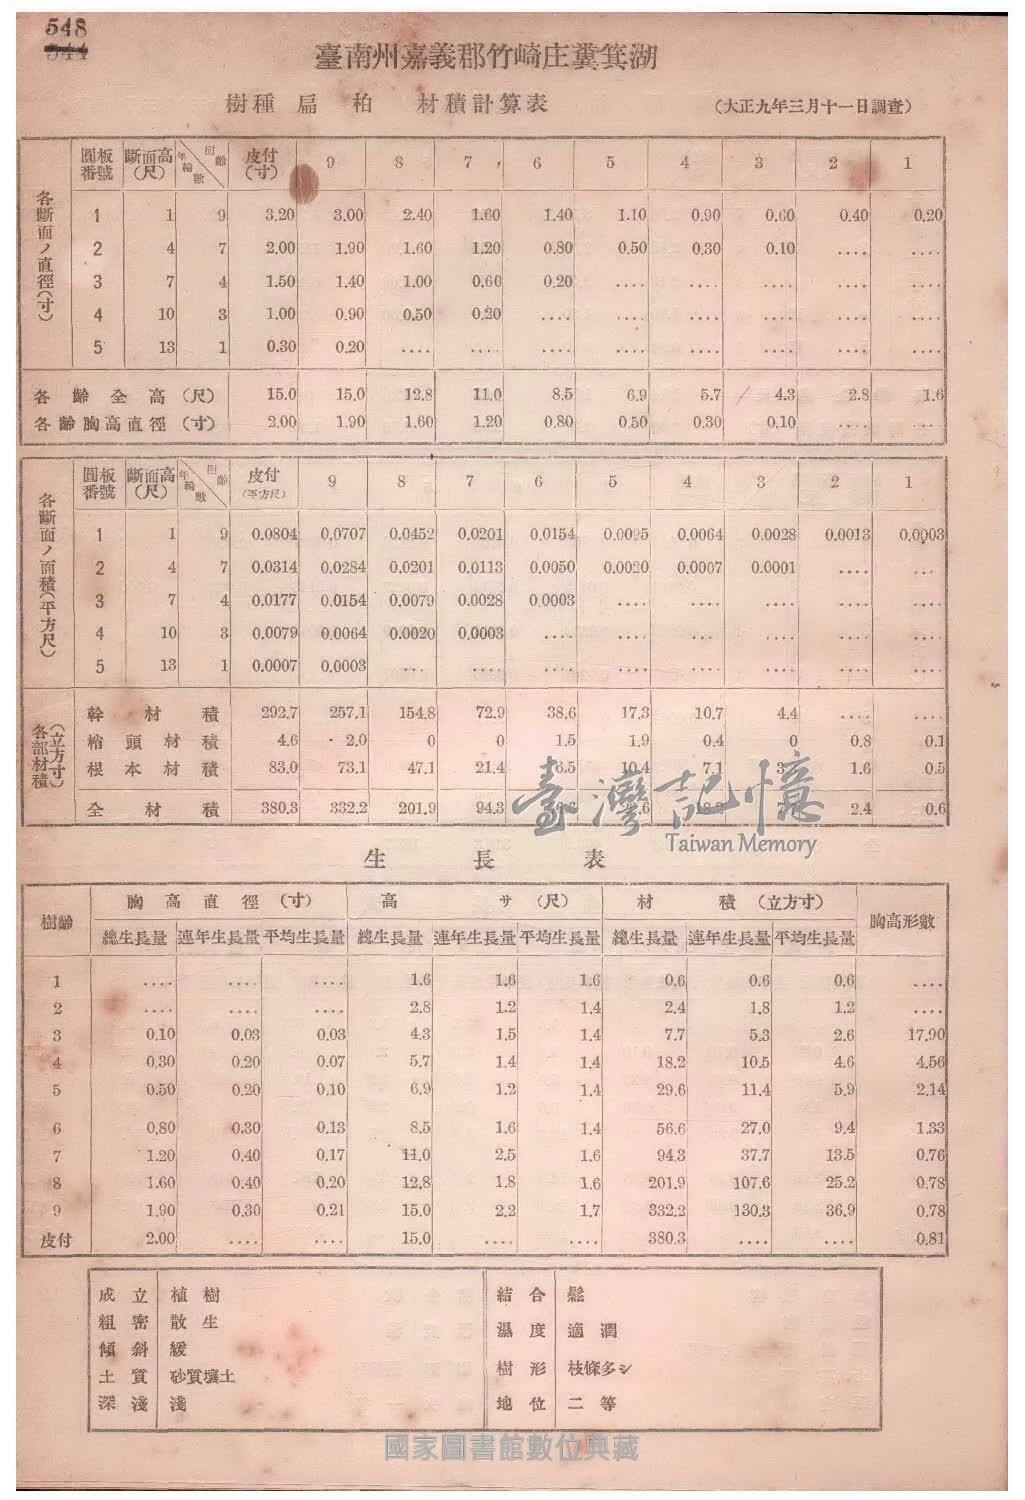 548
544
臺南州嘉義郡竹崎庄糞箕湖
樹種 扁 柏 材積計算表 (大正九年三月十一日調查)
各斷面ノ直徑(寸)
圓板番號 斷面高(尺) 年輪數 樹齡 皮付(寸) 9 8 7 6 5 4 3 2 1
1 1 9 3.20 3.00 2.40 1.60 1.40 1.10 0.90 0.60 0.40 0.20
2 4 7 2.00 1.90 1.60 1.20 0.80 0.50 0.30 0.10 .... ....
3 7 4 1.50 1.40 1.00 0.60 0.20 .... .... .... .... ....
4 10 3 1.00 0.90 0.50 0.20 .... .... .... .... .... ....
5 13 1 0.30 0.20 .... .... .... .... .... .... .... ....
各齡全高(尺) 15.0 15.0 12.8 11.0 8.5 6.9 5.7 4.3 2.8 1.6
各齡胸高直徑(寸) 2.00 1.90 1.60 1.20 0.80 0.50 0.30 0.10 .... ....
各斷面ノ面積(平方尺)
圓板番號 斷面高(尺) 年輪數 樹齡 皮付(平方尺) 9 8 7 6 5 4 3 2 1
1 1 9 0.0804 0.0707 0.0452 0.0201 0.0154 0.0095 0.0064 0.0028 0.0013 0.0003
2 4 7 0.0314 0.0284 0.0201 0.0113 0.0050 0.0020 0.0007 0.0001 .... ....
3 7 4 0.0177 0.0154 0.0079 0.0028 0.0003 .... .... .... .... ....
4 10 3 0.0079 0.0064 0.0020 0.0003 .... .... .... .... .... ....
5 13 1 0.0007 0.0003 .... .... .... .... .... .... .... ....
各部材積(立方寸)
幹材積 292.7 257.1 154.8 72.9 38.6 17.3 10.7 4.4 .... ....
梢頭材積 4.6 2.0 0 0 1.5 1.9 0.4 0 0.8 0.1
根本材積 83.0 73.1 47.1 21.4 6.5 10.4 7.1 3 1.6 0.5
全材積 380.3 332.2 201.9 94.3 2.4 0.6
臺灣記憶
Taiwan Memory
生長表
樹齡 胸高直徑(寸) 高サ(尺) 材積(立方寸) 胸高形數
總生長量 連年生長量 平均生長量 總生長量 連年生長量 平均生長量 總生長量 連年生長量 平均生長量
1 .... .... .... 1.6 1.6 1.6 0.6 0.6 0.6 ....
2 .... .... .... 2.8 1.2 1.4 2.4 1.8 1.2 ....
3 0.10 0.03 0.03 4.3 1.5 1.4 7.7 5.3 2.6 17.90
4 0.30 0.20 0.07 5.7 1.4 1.4 18.2 10.5 4.6 4.56
5 0.50 0.20 0.10 6.9 1.2 1.4 29.6 11.4 5.9 2.14
6 0.80 0.30 0.13 8.5 1.6 1.4 56.6 27.0 9.4 1.33
7 1.20 0.40 0.17 11.0 2.5 1.6 94.3 37.7 13.5 0.76
8 1.60 0.40 0.20 12.8 1.8 1.6 201.9 107.6 25.2 0.78
9 1.90 0.30 0.21 15.0 2.2 1.7 332.2 130.3 36.9 0.78
皮付 2.00 .... .... 15.0 .... .... 380.3 .... .... 0.81
成立 植樹
粗密 散生
傾斜 緩
土質 砂質壤土
深淺 淺
結合 鬆
濕度 適潤
樹形 枝條多シ
地位 二等
國家圖書館數位典藏